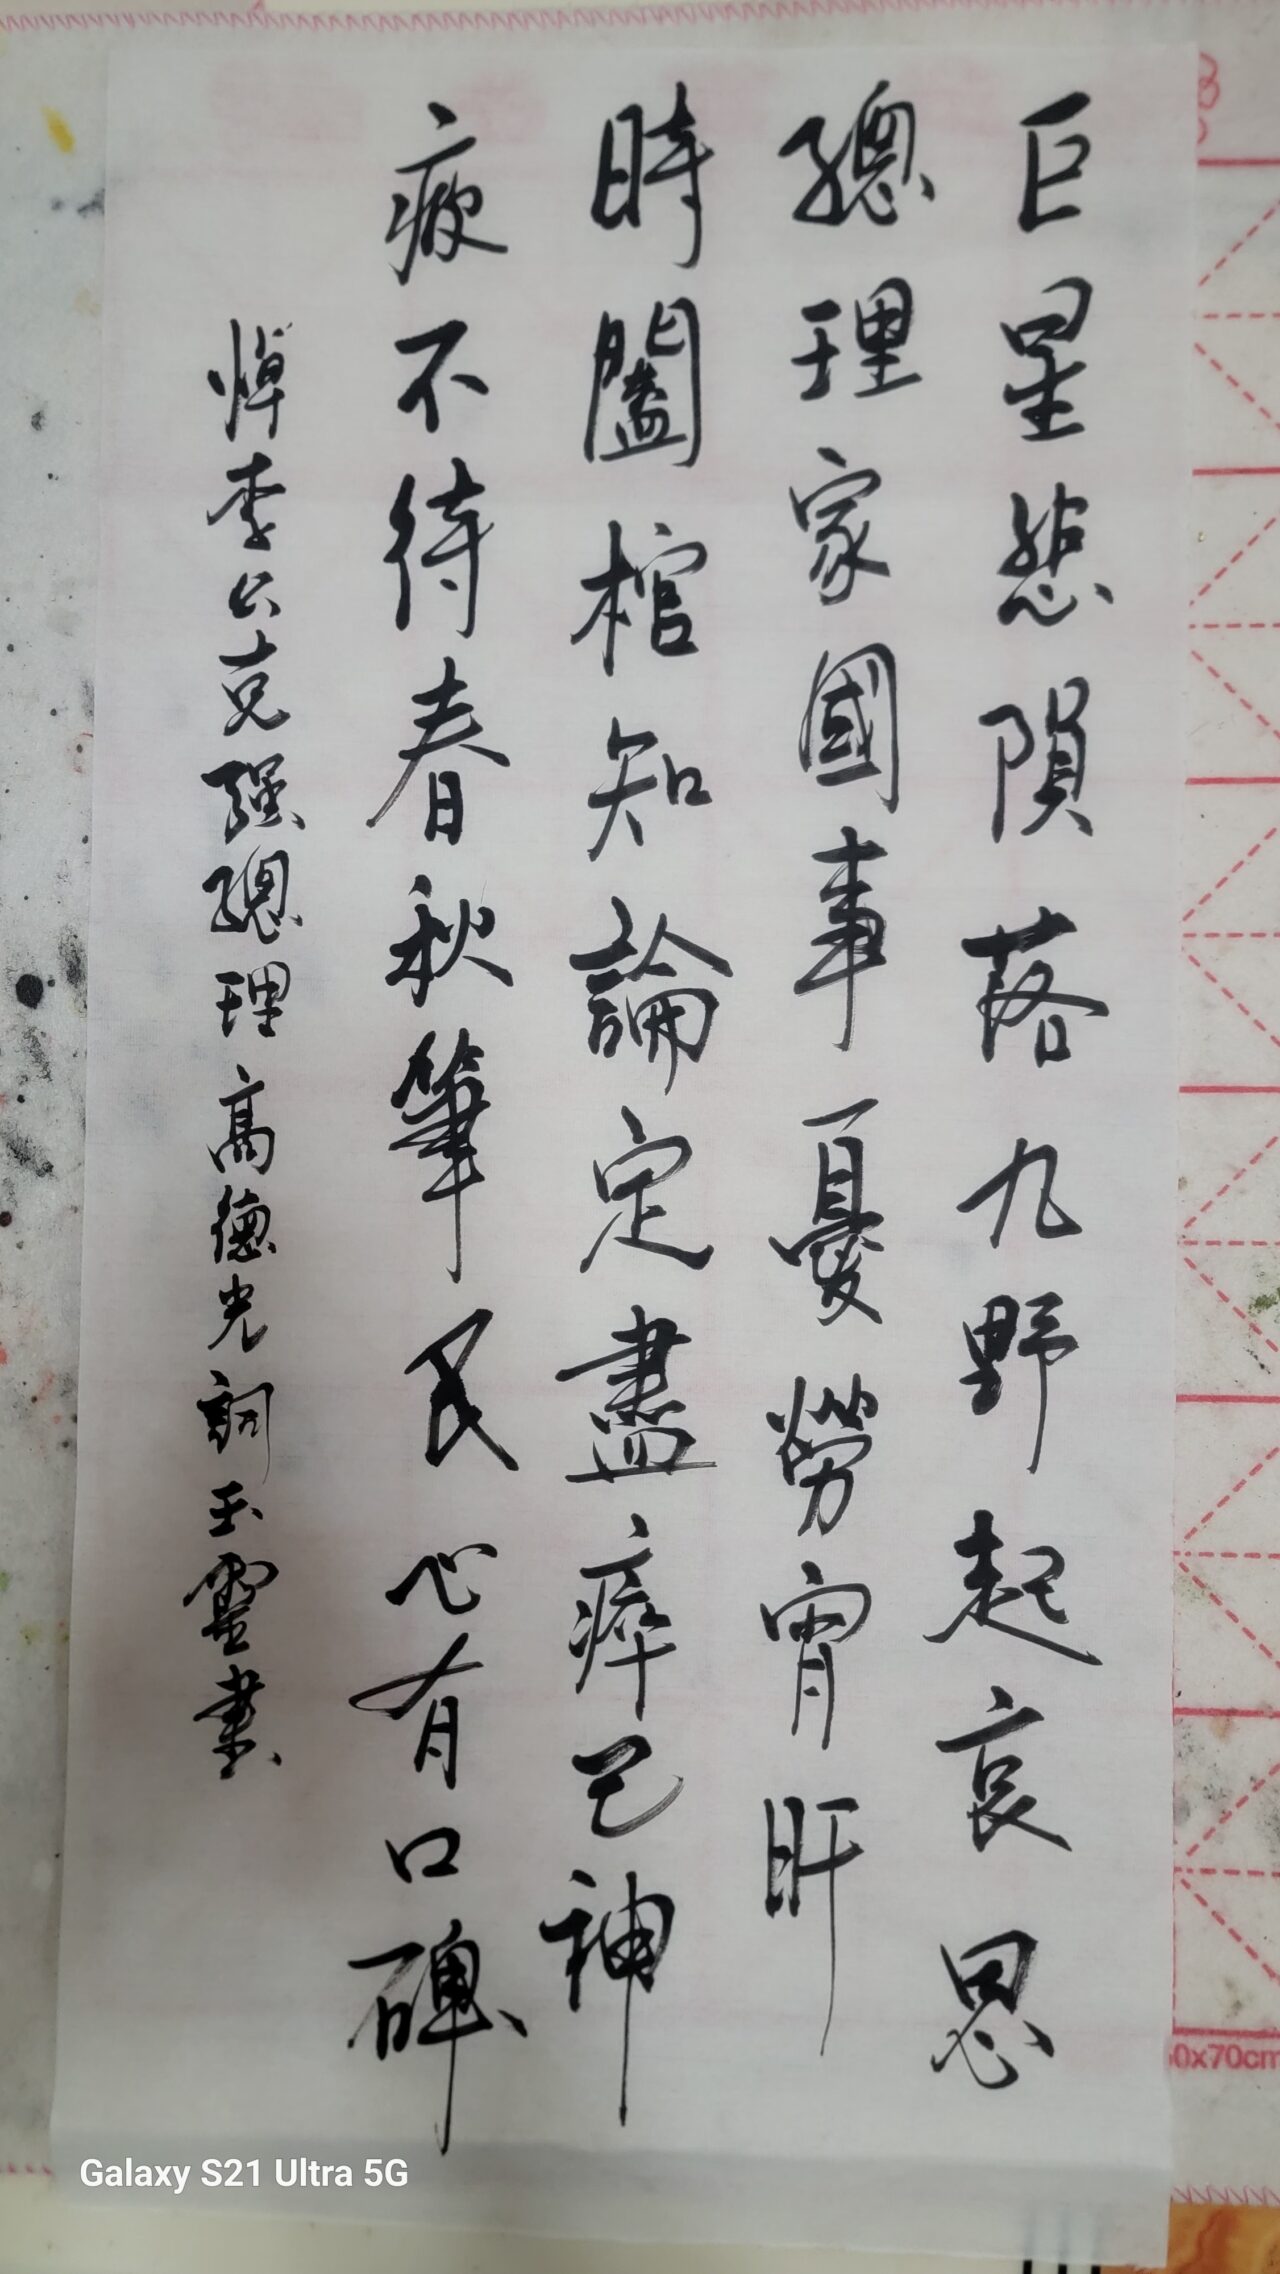 巨星愁隕落九野起哀思
總理家國事憂勞宵旰
時闔棺知論定盡瘁已神
疲不待春秋筆民心有口碑
悼李公克强總理高德光詞玉靈書
60x70cm
Galaxy S21 Ultra 5G